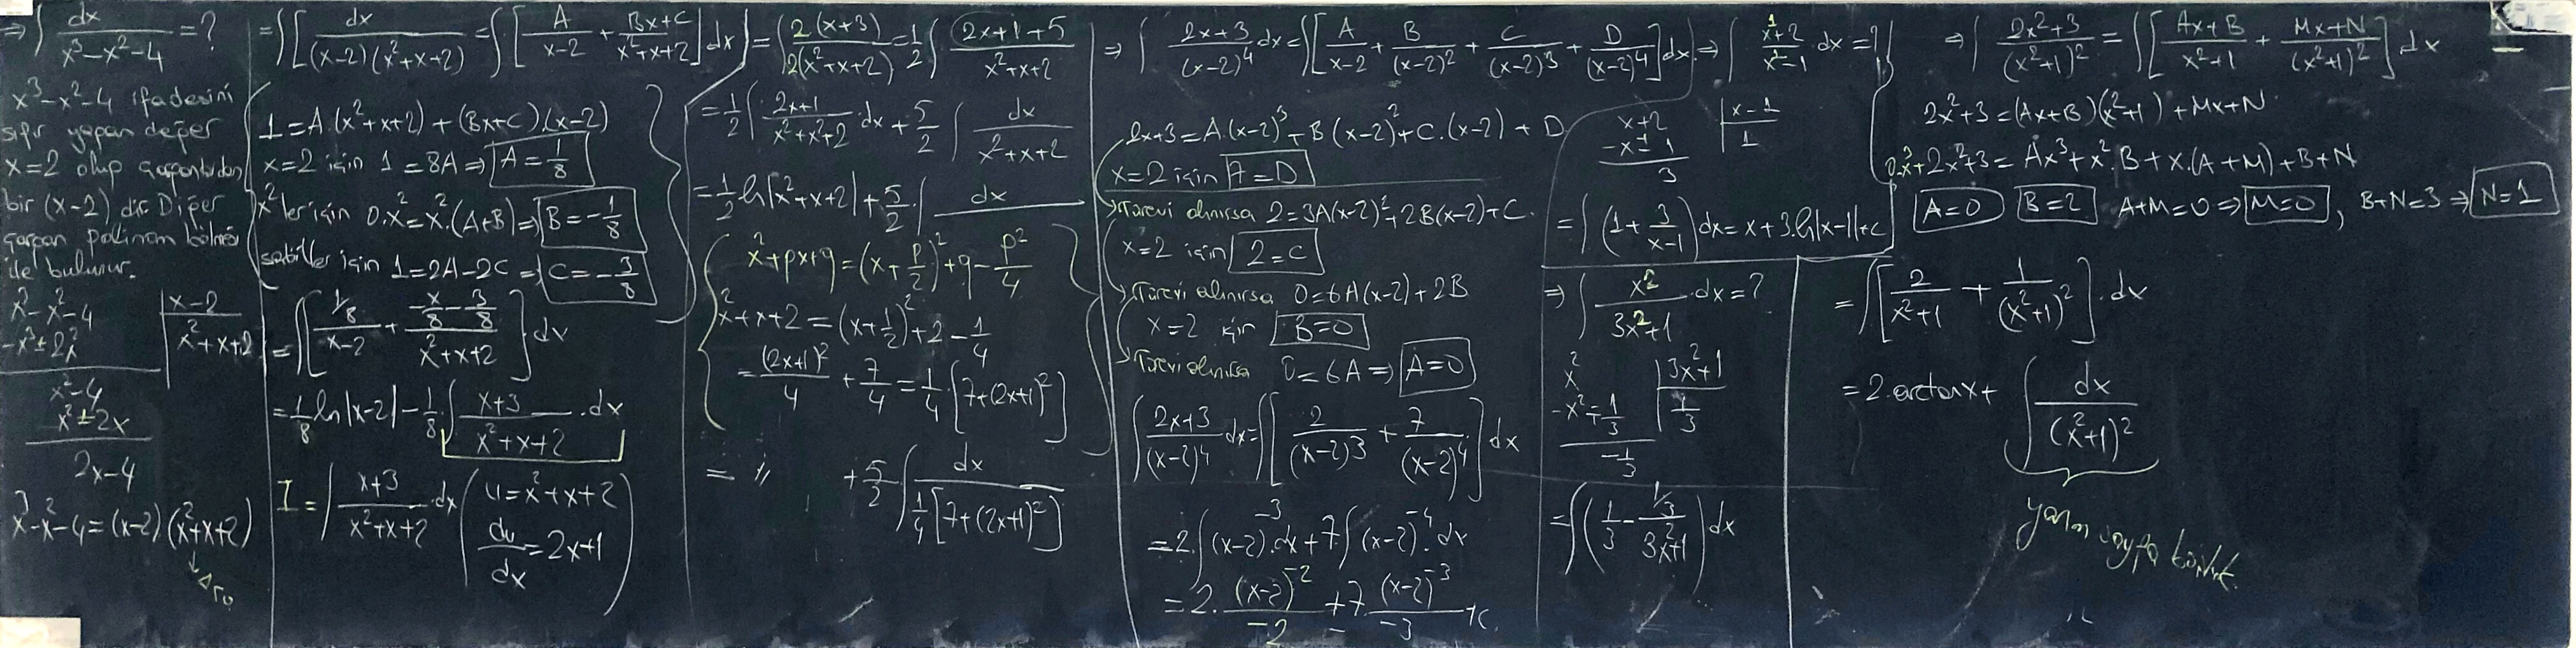 ⇒ ∫ dx / (x³-x²-4) = ?
x³-x²-4 ifadesini
sıfır yapan değer
x=2 olup çarpanlardan
bir (x-2) dir. Diğer
çarpan polinom bölmesi
ile bulunur.
x³-x²-4 | x-2
-x³±2x² | x²+x+2
x²-4
x²±2x
2x-4
x³-x²-4=(x-2)(x²+x+2)
↓
Δ<0
=∫[dx / (x-2)(x²+x+2)] = ∫[A/(x-2) + (Bx+C)/(x²+x+2)]dx
1=A.(x²+x+2)+(Bx+C).(x-2)
x=2 için 1=8A ⇒ A=1/8
x² ler için 0.x²=x².(A+B) ⇒ B=-1/8
sabitler için 1=2A-2C ⇒ C=-3/8
=∫[(1/8)/(x-2) + (-x/8-3/8)/(x²+x+2)]dx
=1/8 ln|x-2| - 1/8 ∫ (x+3)/(x²+x+2) .dx
I=∫ (x+3)/(x²+x+2) .dx (u=x²+x+2
du/dx=2x+1)
=∫ 2(x+3) / 2(x²+x+2) = 1/2 ∫ (2x+1+5)/(x²+x+2)
=1/2 ∫ (2x+1)/(x²+x²+2) .dx + 5/2 ∫ dx/(x²+x+2)
=1/2 ln|x²+x+2| + 5/2 . ∫ dx
x²+px+q=(x+p/2)²+q-p²/4
x²+x+2=(x+1/2)²+2-1/4
=(2x+1)²/4 + 7/4 = 1/4 [7+(2x+1)²]
= " +5/2 ∫ dx / 1/4[7+(2x+1)²]
⇒ ∫ (2x+3)/(x-2)⁴ dx=∫[A/(x-2) + B/(x-2)² + C/(x-2)³ + D/(x-2)⁴]dx
2x+3=A.(x-2)³+B(x-2)²+C.(x-2)+D
x=2 için 7=D
Türevi alınırsa 2=3A(x-2)²+2B(x-2)+C.
x=2 için 2=C
Türevi alınırsa 0=6A(x-2)+2B
x=2 için B=0
Türevi alınırsa 0=6A ⇒ A=0
∫ (2x+3)/(x-2)⁴ dx=∫[2/(x-2)³ + 7/(x-2)⁴]dx
=2.∫(x-2)⁻³.dx+7.∫(x-2)⁻⁴.dx
=2.(x-2)⁻²/-2 +7.(x-2)⁻³/-3 +c.
⇒ ∫ (x+2)/(x²-1) .dx=?
x+2 | x-1
-x±1 | 1
3
=∫(1+3/(x-1))dx=x+3.ln|x-1|+c
⇒ ∫ x²/(3x²+1) .dx=?
x² | 3x²+1
-x²∓1/3 | 1/3
-1/3
=∫(1/3 - (1/3)/(3x²+1))dx
⇒ ∫ (2x²+3)/(x²+1)² = ∫[(Ax+B)/(x²+1) + (Mx+N)/(x²+1)²]dx
2x²+3=(Ax+B)(x²+1)+Mx+N
0.x³+2x²+3=Ax³+x².B+x.(A+M)+B+N
A=0 B=2 A+M=0 ⇒ M=0, B+N=3 ⇒ N=1
=∫[2/(x²+1) + 1/(x²+1)²].dx
=2.arctanx+ ∫ dx/(x²+1)²
sayfa